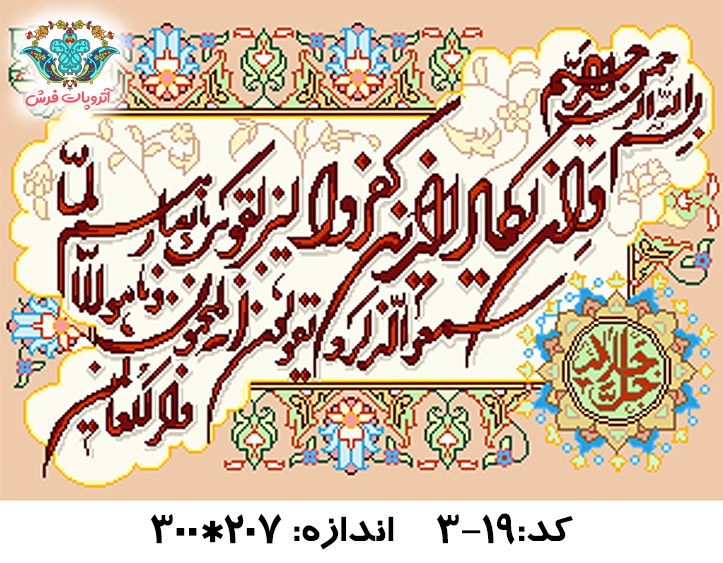 آتروپات فرش
بسم الله الرحمن الرحیم
وان یکاد الذین کفروا لیزلقونک بابصارهم لمّا
سمعوا الذکر و یقولون انه لمجنون و ما هو الّا
ذکر للعالمین
جل جلاله
کد:۳-۱۹ اندازه: ۲۰۷*۳۰۰